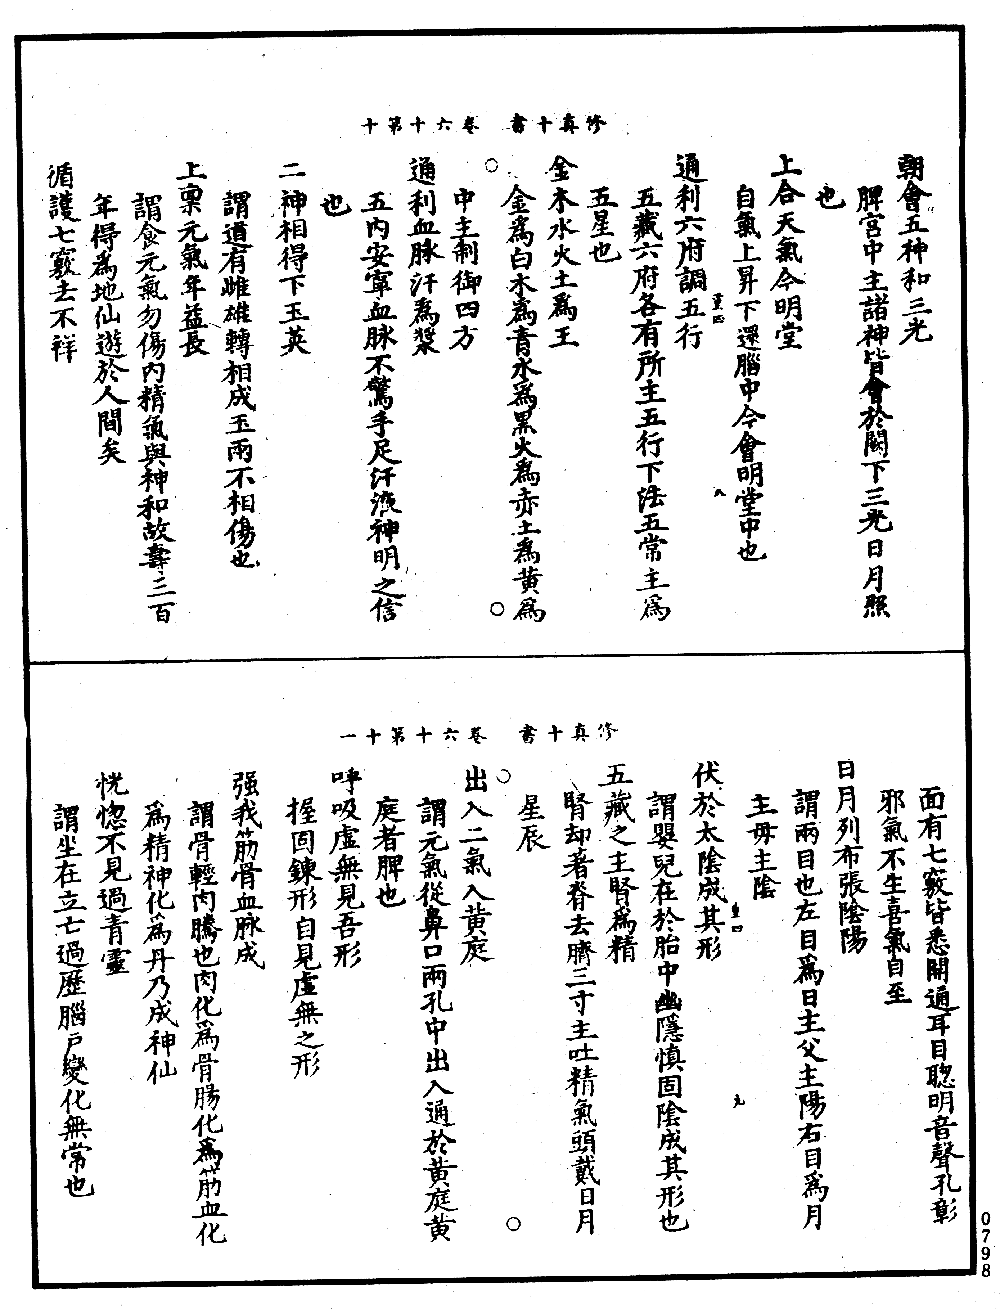 修真十書　卷六十第十
朝會五神和三光
脾宮中主諸神皆會於闕下三光日月照
也
上合天氣令明堂
自氣上昇下還腦中令會明堂中也
通利六府調五行
五藏六府各有所主五行下法五常主爲
五星也
金木水火土爲王
金爲白木爲青水爲黑火爲赤土爲黃爲
中主制御四方
通利血脉汗爲漿
五內安寧血脉不驚手足汗液神明之信
也
二神相得下玉英
謂道有雌雄轉相成玉兩不相傷也
上稟元氣年益長
謂食元氣勿傷內精氣與神和故壽三百
年得爲地仙遊於人間矣
循護七竅去不祥
修真十書　卷六十第十一
面有七竅皆悉開通耳目聰明音聲孔彰
邪氣不生喜氣自至
日月列布張陰陽
謂兩目也左目爲日主父主陽右目爲月
主母主陰
伏於太陰成其形
謂嬰兒在於胎中幽隱慎固陰成其形也
五藏之主腎爲精
腎却著脊去臍三寸主吐精氣頭戴日月
星辰
出入二氣入黃庭
謂元氣從鼻口兩孔中出入通於黃庭黃
庭者脾也
呼吸虛無見吾形
握固鍊形自見虛無之形
强我筋骨血脉成
謂骨輕肉騰也肉化爲骨腸化爲筋血化
爲精神化爲丹乃成神仙
恍惚不見過青靈
謂坐在立亡過歷腦戶變化無常也
0798